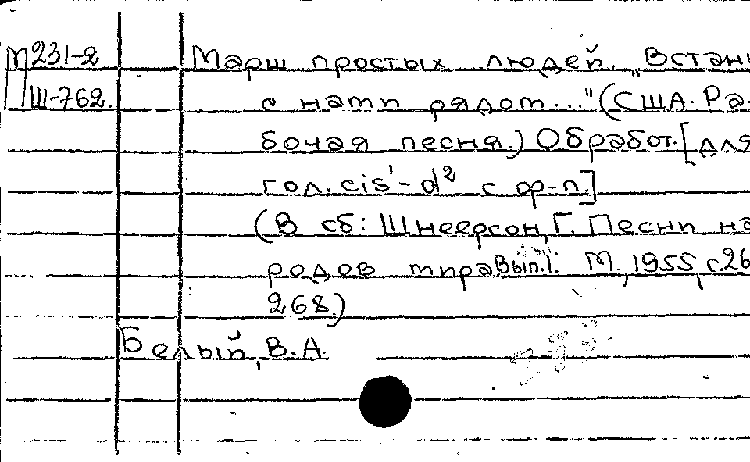 М231-2 Марш простых людей. „Встань
Ш-762. с нами рядом..." (США. Ра-
бочая песня.) Обработ. [для
гол. cis¹-d² с ф-п.]
(В сб: Шнеерсон, Г. Песни на-
родов мира. Вып. 1. М., 1955, с. 26
268.)
Белый, В. А.